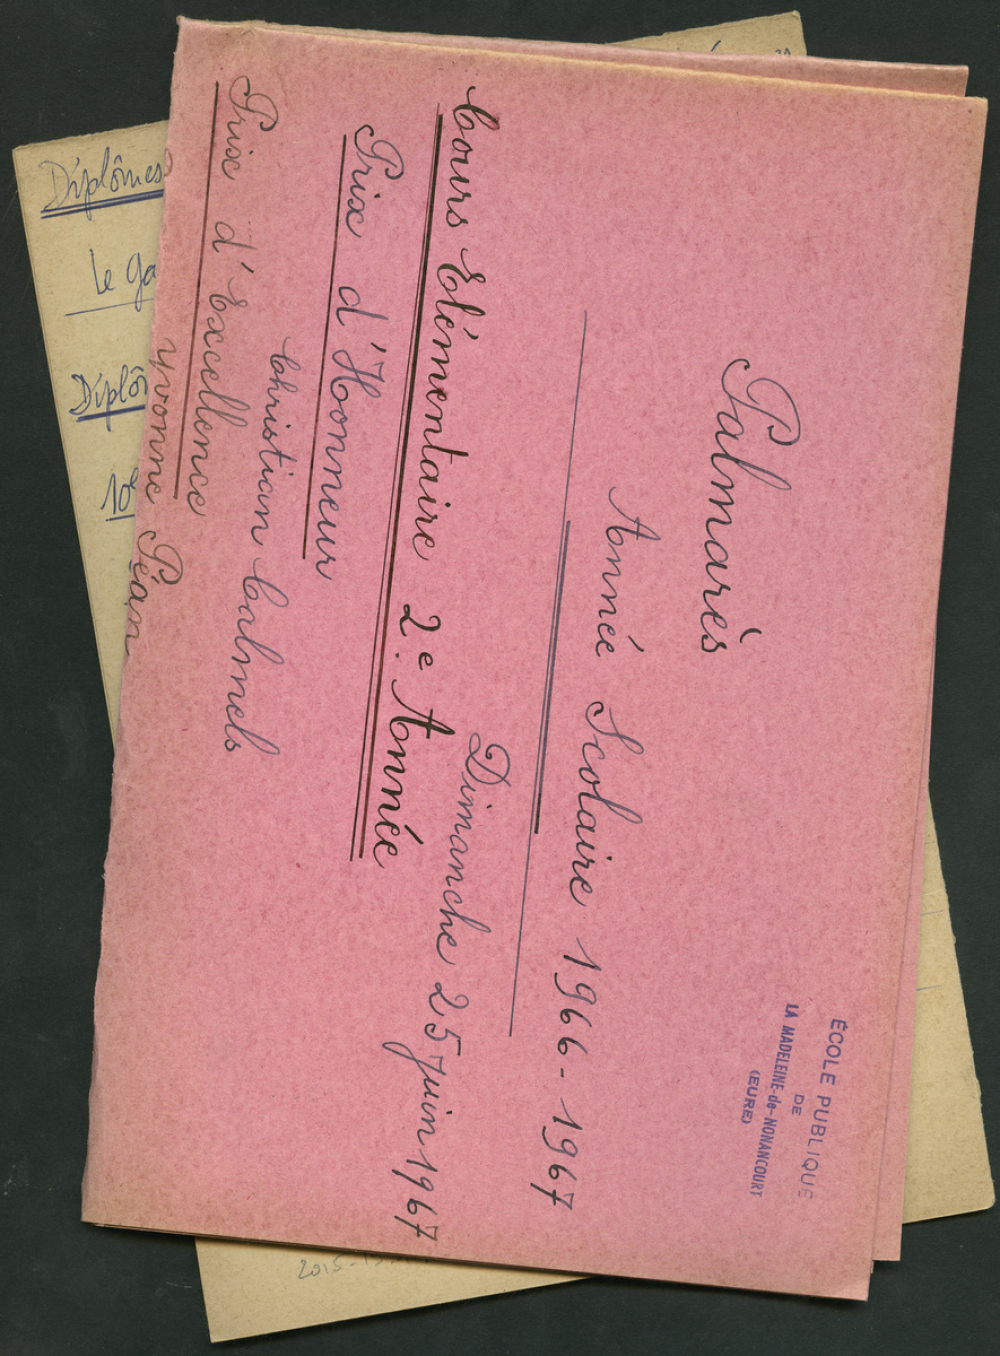 ÉCOLE PUBLIQUE
DE
LA MADELEINE-de-NONANCOURT
(EURE)
Palmarès
Année Scolaire 1966-1967
Dimanche 25 juin 1967
Cours Elémentaire 2e Année
Prix d'Honneur
Christian Calmels
Prix d'Excellence
Yvonne Péan
Diplômes
Le Ga
Diplô
10e